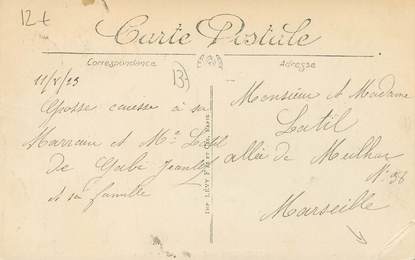 12 €
Carte Postale
Correspondance
Adresse
13
11/5/23
Grosse caresse à sa
Marraine et Mr Latil
De Gabi
et sa famille
IMP. LÉVY FILS ET CIE, PARIS
Monsieur et Madame
Latil
allée de Meilhan
N° 56
Marseille